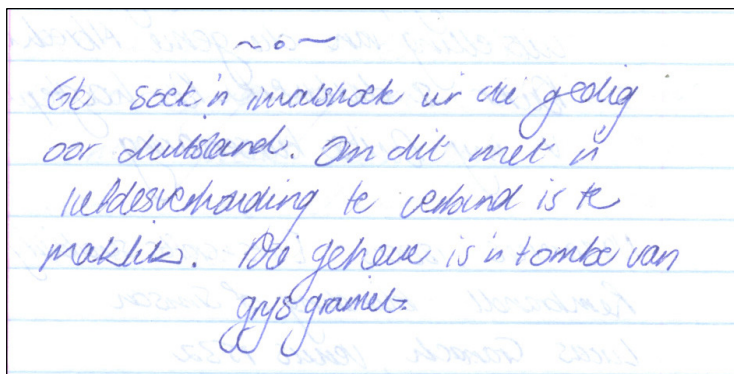 ~ ∘ ~
Ek soek 'n invalshoek vir die gedig
oor duitsland. Om dit met 'n
liefdesverhouding te verbind is te
maklik. Die geheue is 'n tombe van
grys graniet.